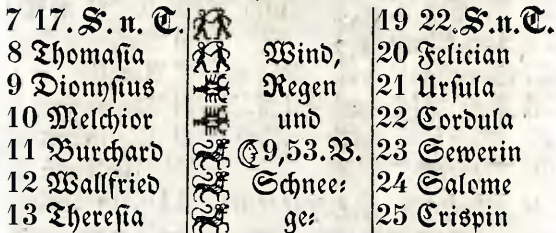 7 17. S. n. T. 19 22. S. n. T.
8 Thomaſia Wind, 20 Felician
9 Dionyſius Regen 21 Urſula
10 Melchior und 22 Cordula
11 Burchard 9,53. V. 23 Sewerin
12 Wallfried Schnee⸗ 24 Salome
13 Thereſia ge⸗ 25 Crispin